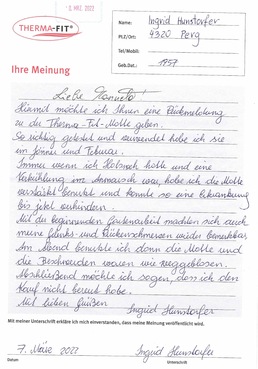 - 8. MRZ. 2022
THERMA-FIT®
Name: Ingrid Hunstorfer
PLZ/Ort: 4320 Perg
Tel/Mobil:
Geb.Dat.: 1957
Ihre Meinung
Liebe
Hiermit möchte ich Ihnen eine Rückmeldung
zu der Therma-Fit-Matte geben.
So richtig getestet und verwendet habe ich sie
im Jänner und Februar.
Immer wenn ich Halsweh hatte und eine
Verkühlung im Anmarsch war, habe ich die Matte
verstärkt benutzt und konnte so eine Erkrankung
bis jetzt verhindern.
Mit der beginnenden Gartenarbeit machten sich auch
meine Gelenks- und Rückenschmerzen wieder bemerkbar.
Am Abend benutzte ich dann die Matte und
die Beschwerden waren wie weggeblasen.
Abschließend möchte ich sagen, dass ich den
Kauf nicht bereut habe.
Mit lieben Grüßen
Ingrid Hunstorfer
Mit meiner Unterschrift erkläre ich mich einverstanden, dass meine Meinung veröffentlicht wird.
7. März 2022 Ingrid Hunstorfer
Datum Unterschrift